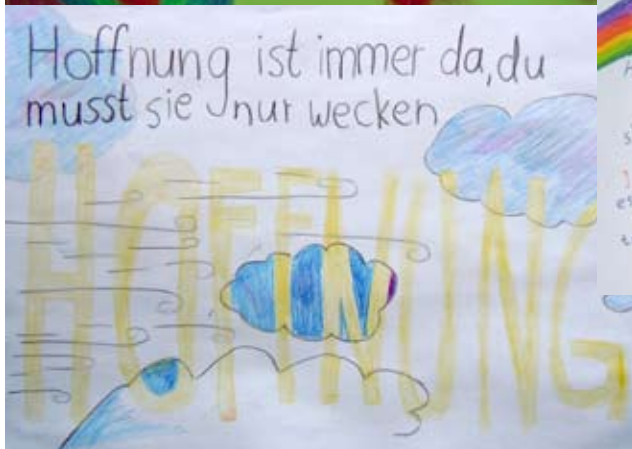 Hoffnung ist immer da, du
musst sie nur wecken
HOFFNUNG